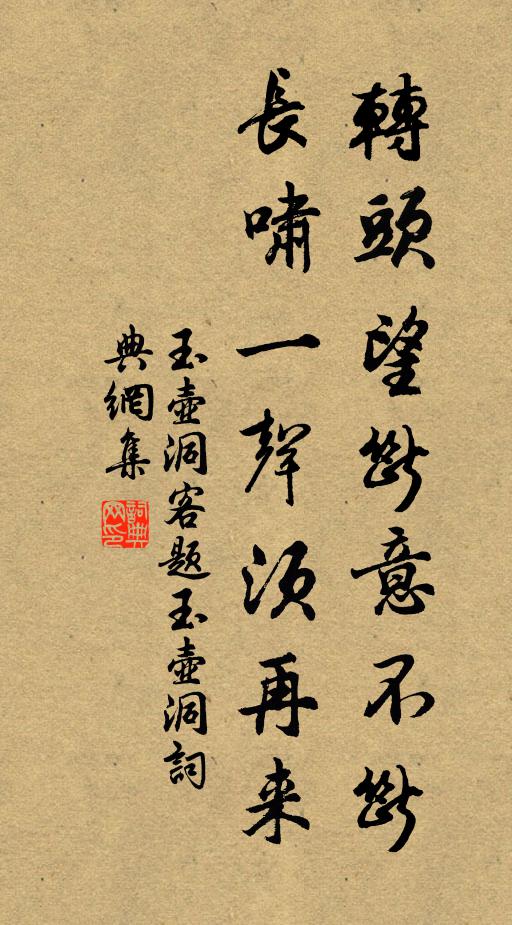 轉頭望斷意不斷
長嘯一聲須再来
玉壺洞客题玉壺洞詞
典網集
詞典
网印